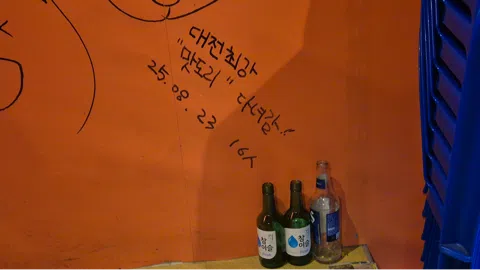 대전최강
"맛도리" 다녀감!!
25.08.23 16人
참이슬
참이슬